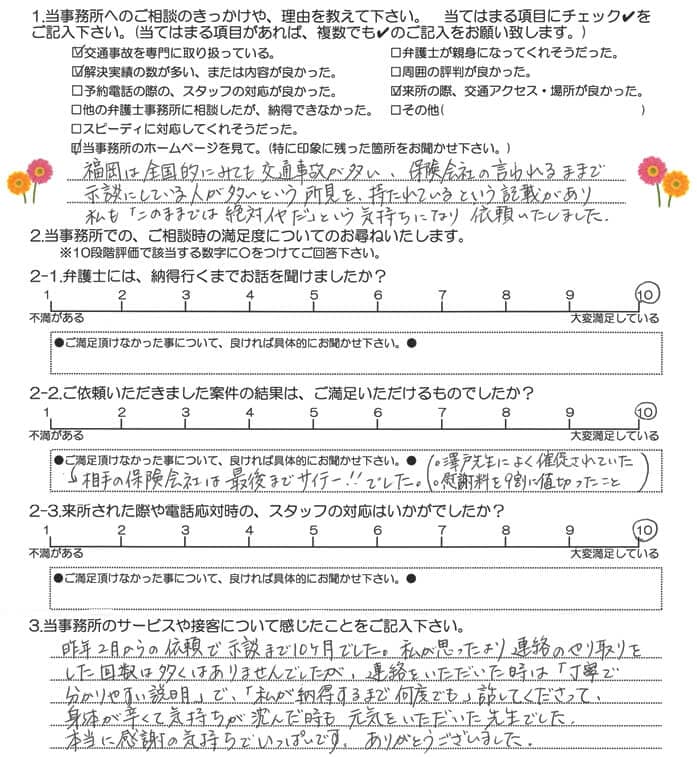 1.当事務所へのご相談のきっかけや、理由を教えて下さい。 当てはまる項目にチェック✔を
ご記入下さい。(当てはまる項目があれば、複数でも✔のご記入をお願い致します。)
☑交通事故を専門に取り扱っている。 □弁護士が親身になってくれそうだった。
☑解決実績の数が多い、または内容が良かった。 □周囲の評判が良かった。
□予約電話の際の、スタッフの対応が良かった。 ☑来所の際、交通アクセス・場所が良かった。
□他の弁護士事務所に相談したが、納得できなかった。 □その他( )
□スピーディに対応してくれそうだった。
☑当事務所のホームページを見て。(特に印象に残った箇所をお聞かせ下さい。)
福岡は全国的にみても交通事故が多い、保険会社の言われるままで
示談にしている人が多いという所見を、持たれているという記載があり
私も「このままでは絶対イヤだ」という気持ちになり依頼いたしました。
2.当事務所での、ご相談時の満足度についてのお尋ねいたします。
※10段階評価で該当する数字に○をつけてご回答下さい。
2-1.弁護士には、納得行くまでお話を聞けましたか?
1 2 3 4 5 6 7 8 9 10
不満がある 大変満足している
●ご満足頂けなかった事について、良ければ具体的にお聞かせ下さい。●
2-2.ご依頼いただきました案件の結果は、ご満足いただけるものでしたか?
1 2 3 4 5 6 7 8 9 10
不満がある 大変満足している
●ご満足頂けなかった事について、良ければ具体的にお聞かせ下さい。● (○澤戸先生によく催促されていた
相手の保険会社は最後までサイテー!!でした。 ○慰謝料を9割に値切ったこと)
2-3.来所された際や電話応対時の、スタッフの対応はいかがでしたか?
1 2 3 4 5 6 7 8 9 10
不満がある 大変満足している
●ご満足頂けなかった事について、良ければ具体的にお聞かせ下さい。●
3.当事務所のサービスや接客について感じたことをご記入下さい。
昨年2月からの依頼で示談まで10ヶ月でした。私が思ったより連絡のやり取りを
した回数は多くはありませんでしたが、連絡をいただいた時は「丁寧で
分かりやすい説明」で、「私が納得するまで何度でも」話してくださって、
身体が辛くて気持ちが沈んだ時も元気をいただいた先生でした。
本当に感謝の気持ちでいっぱいです。ありがとうございました。